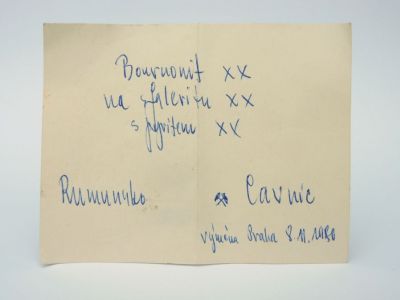 Bournonit xx
na sfaleritu xx
s pyritem xx
Rumunsko ⚒ Cavnic
výměna Praha 8.11.1980